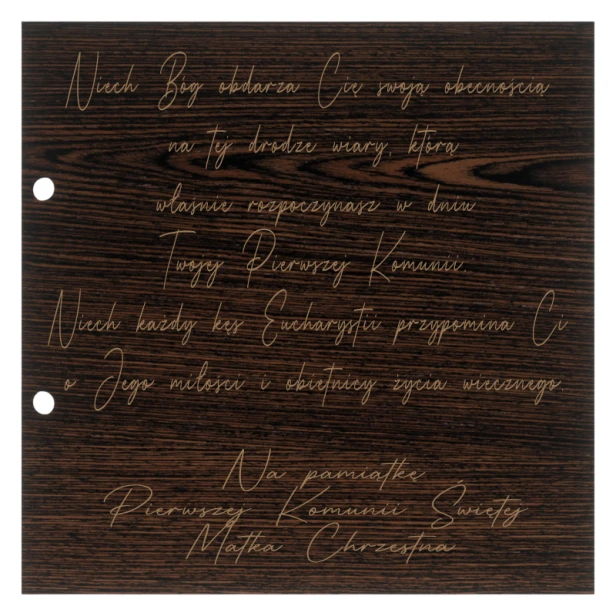 Niech Bóg obdarza Cię swoją obecnością
na tej drodze wiary, którą
właśnie rozpoczynasz w dniu
Twojej Pierwszej Komunii.
Niech każdy kęs Eucharystii przypomina Ci
o Jego miłości i obietnicy życia wiecznego.
Na pamiątkę
Pierwszej Komunii Świętej
Matka Chrzestna